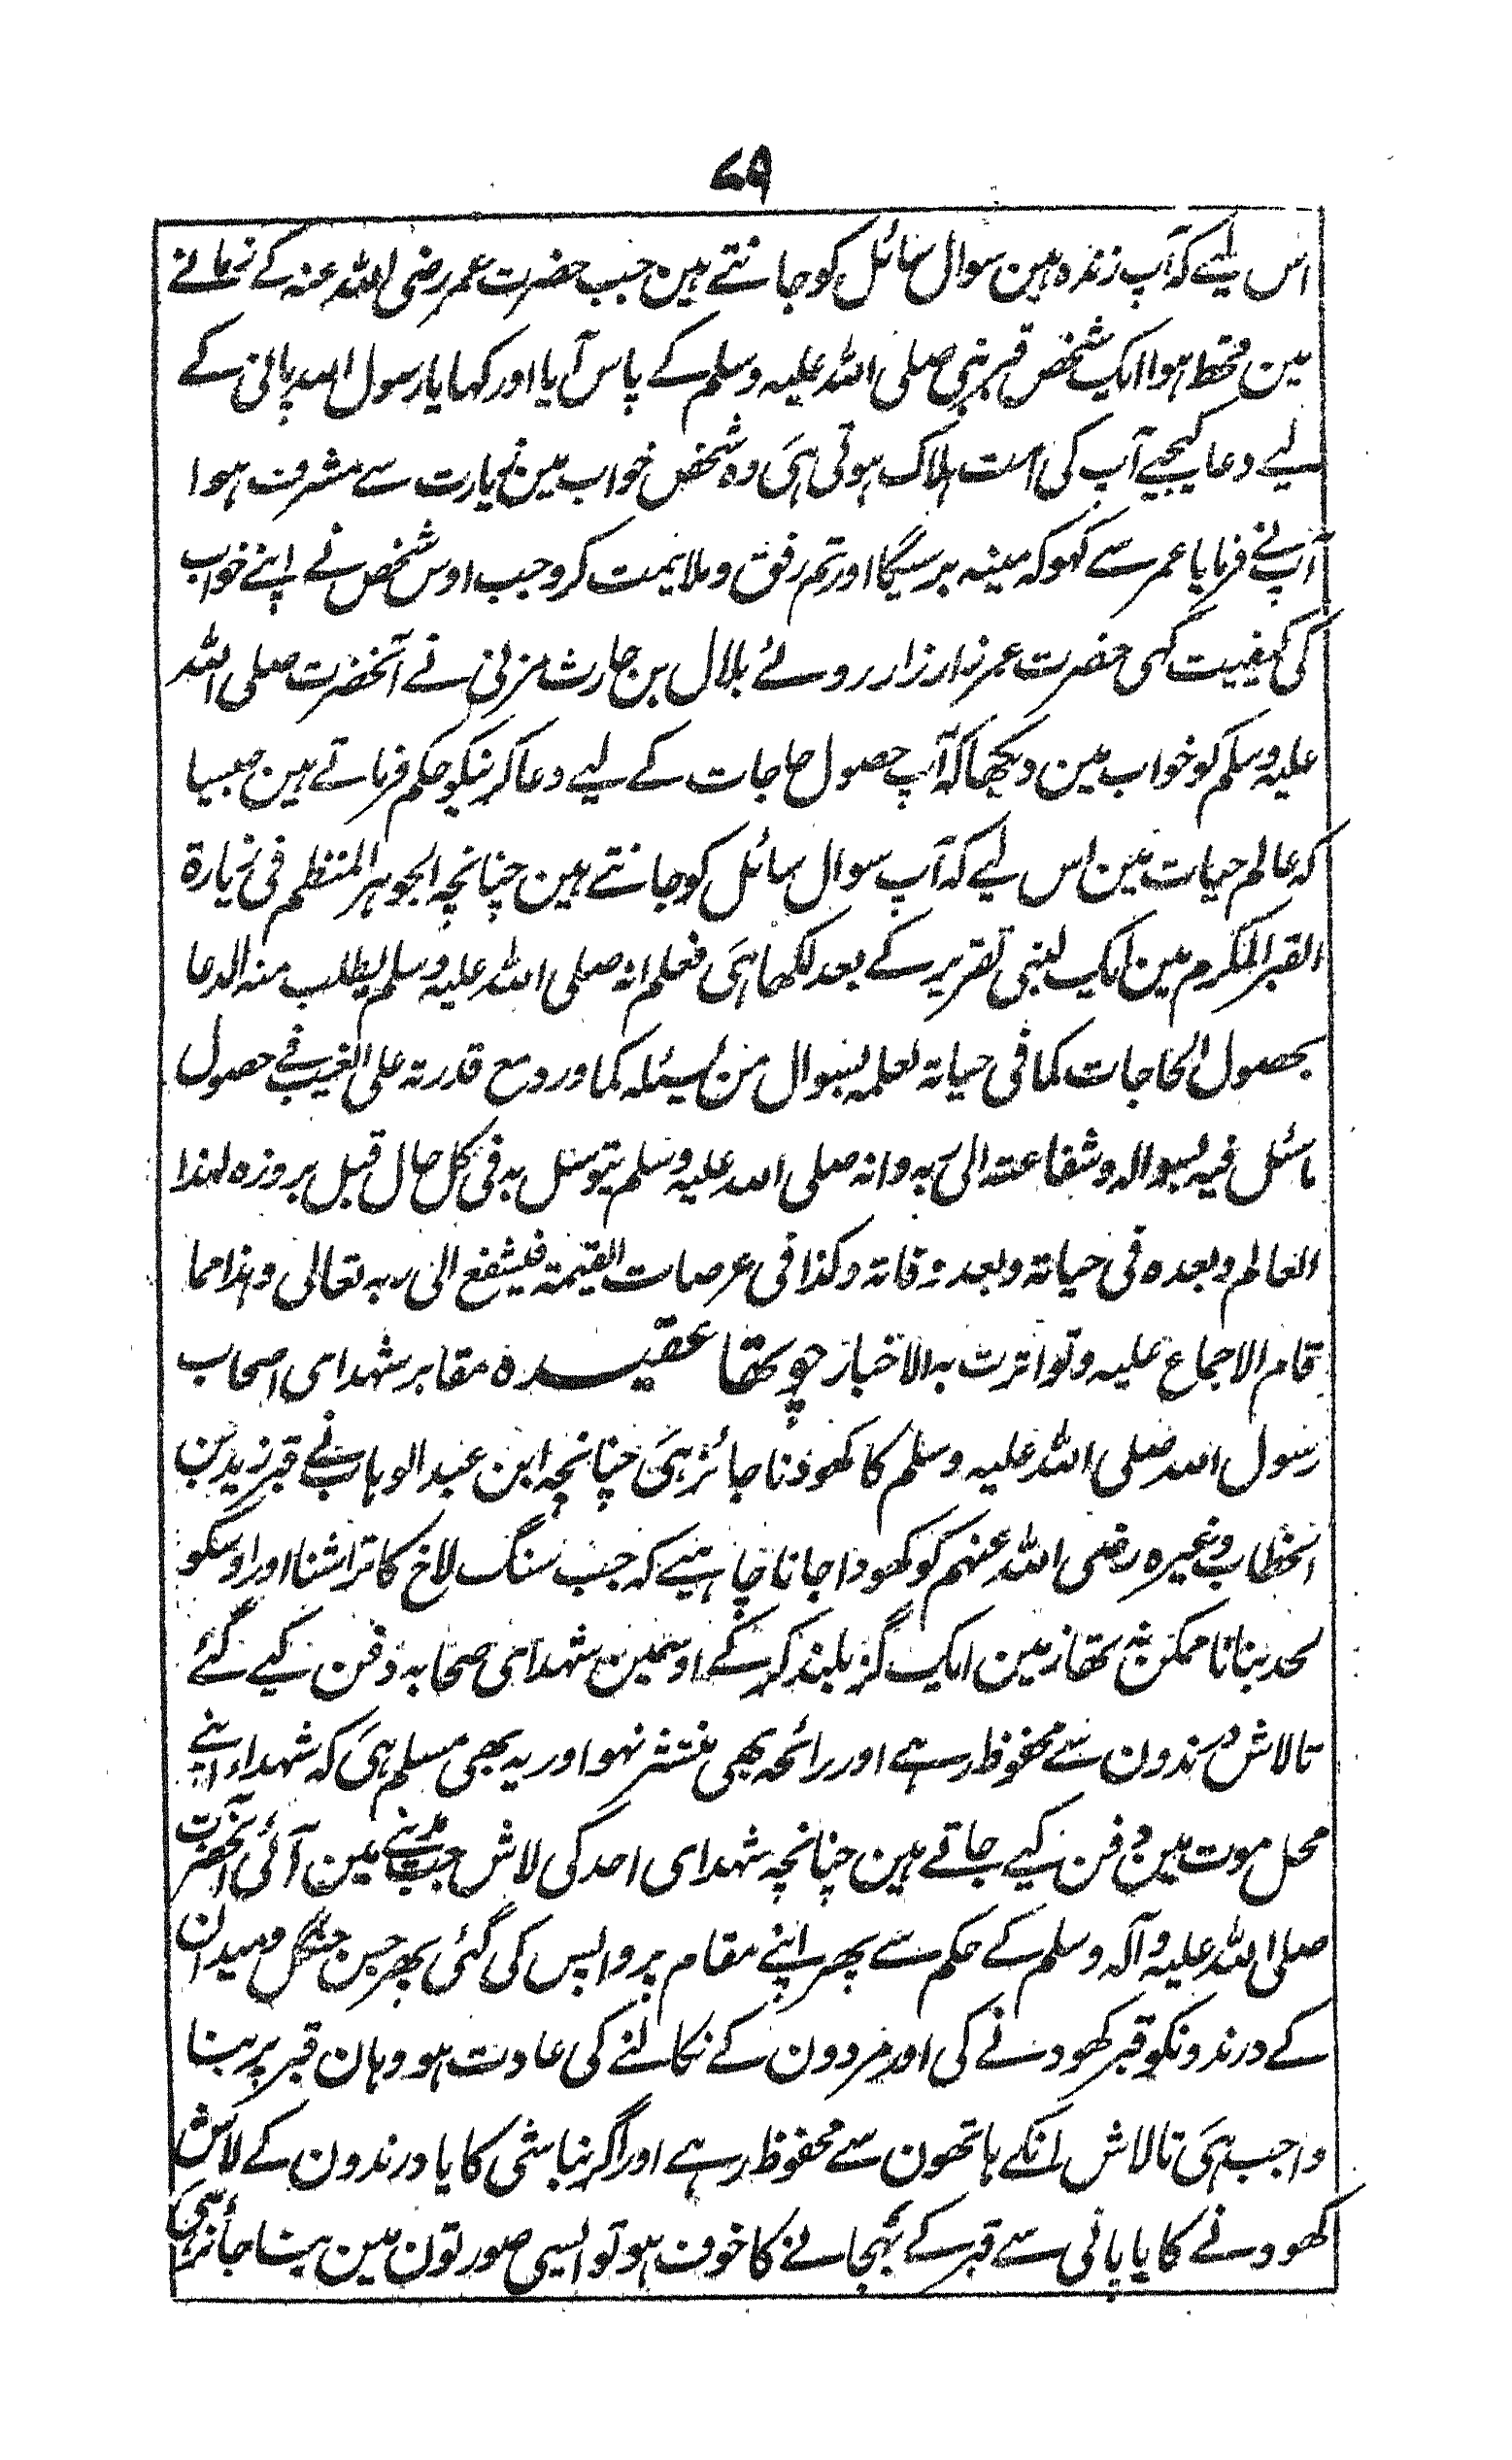 ۷۹
اس لیے کہ آپ زندہ ہین سوال سائل کو جانتے ہین جب حضرت عمر رضی اللہ عنہ کے زمانے
مین قحط ہوا ایک شخص قبر نبی صلی اللہ علیہ وسلم کے پاس آیا اور کہا یا رسول اللہ پانی کے
لیے دعا کیجیے آپ کی امت ہلاک ہوتی ہی وہ شخص خواب مین زیارت سے مشرف ہوا
آپنے فرمایا عمر سے کہو کہ مینہ برسیگا اور تم رفق و ملایمت کرو جب اوس شخص نے اپنے خواب
کی کیفیت کہی حضرت عمر زار زار روئے بلال بن حارث مزنی نے آنحضرت صلی اللہ
علیہ وسلم کو خواب مین دیکھا کہ آپ حصول حاجات کے لیے دعا کرنیکو حکم فرماتے ہین جیسا
کہ عالم حیات مین اس لیے کہ آپ سوال سائل کو جانتے ہین چنانچہ الجوہر المنظم فی زیارۃ
القبر المکرم مین ایک لنبی تقریر کے بعد لکھا ہی فعلم انہ صلی اللہ علیہ وسلم یطلب منہ الدعا
بحصول الحاجات کما فی حیاتہ لعلمہ بسوال من یسئلہ کما ورد مع قدرتہ علی الغیب فی حصول
ماسئل فیہ بسوالہ وشفاعتہ الی ربہ وانہ صلی اللہ علیہ وسلم یتوسل بہ فی کل حال قبل بروزہ لہذا
العالم وبعدہ فی حیاتہ وبعد وفاتہ وکذا فی عرصات القیمۃ فیشفع الی ربہ تعالی وہذا مما
قام الاجماع علیہ وتواترت بہ الاخبار چوتھا عقیدہ مقابر شہدای اصحاب
رسول اللہ صلی اللہ علیہ وسلم کا کھودنا جائز ہی چنانچہ ابن عبد الوہاب نے قبر زید بن
الخطاب وغیرہ رضی اللہ عنہم کو کھودا جانا چاہیے کہ جب سنگ لاخ کا تراشنا اور اوسکو
لحد بنانا ممکن نہ تھا زمین ایک گز بلند کر کے اوسمین شہدای صحابہ دفن کیے گئے
تا لاش درندون سے محفوظ رہے اور رائحہ بھی منتشر نہو اور یہ بھی مسلم ہی کہ شہداء اپنے
محل موت مین دفن کیے جاتے ہین چنانچہ شہدای احد کی لاش جب مدینے مین آئی آنحضرت
صلی اللہ علیہ وآلہ وسلم کے حکم سے پھر اپنے مقام پر واپس کی گئی پھر جس جنگل و میدان
کے درندونکو قبر کھودنے کی اور مردون کے نکالنے کی عادت ہو وہان قبر پر بنا
واجب ہی تا لاش انکے ہاتھون سے محفوظ رہے اور اگر نباشی کا یا درندون کے لاش
کھودنے کا یا پانی سے قبر کے بہجانے کا خوف ہو تو ایسی صورتون مین بنا جائز ہی